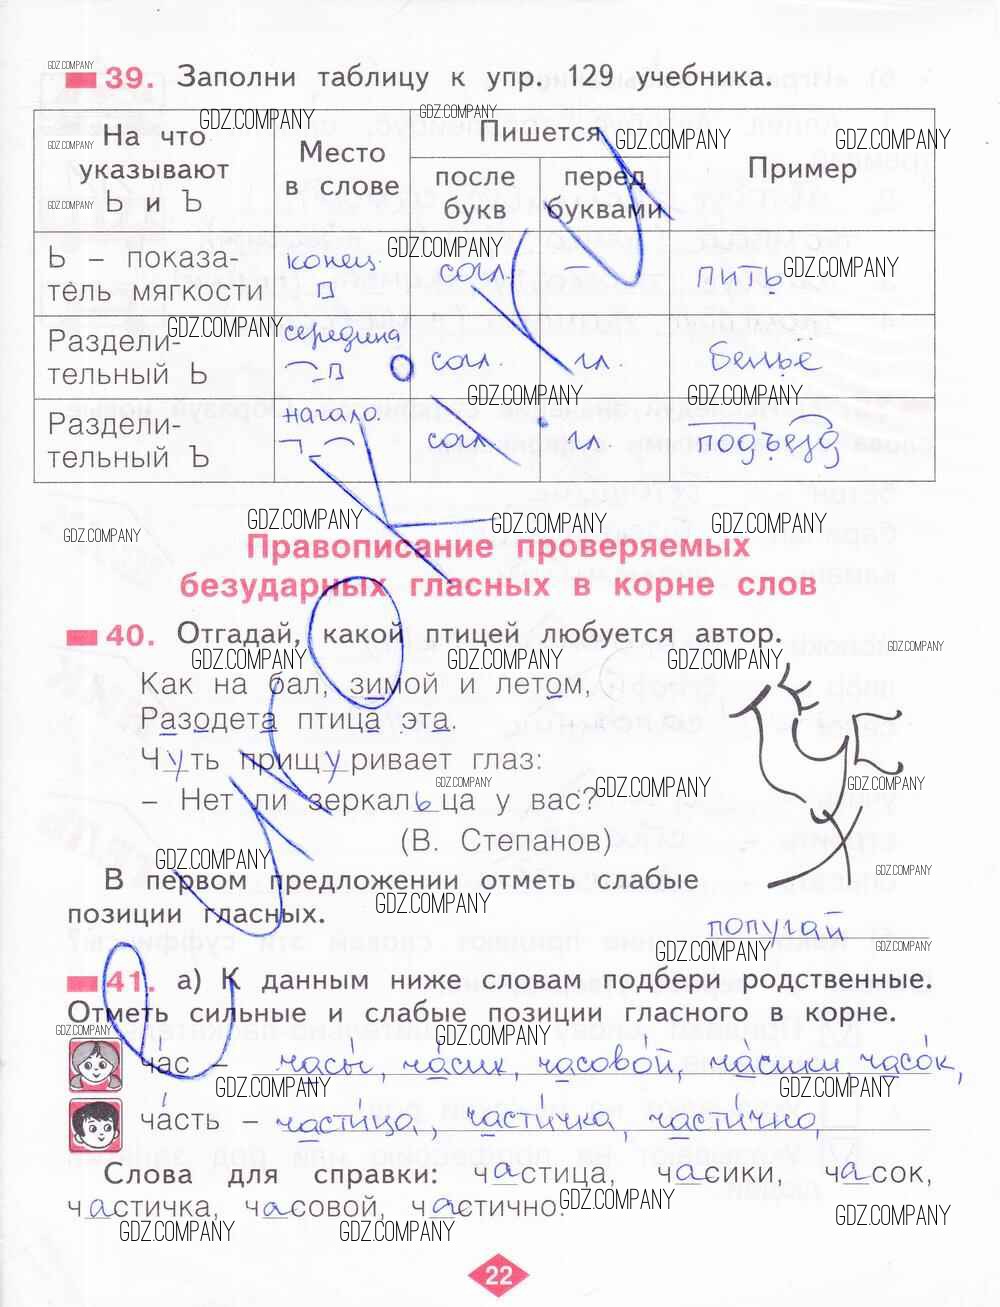 39. Заполни таблицу к упр. 129 учебника.
На что указывают Ь и Ъ
Место в слове
Пишется
после букв
перед буквами
Пример
Ь – показатель мягкости
конец
согл.
—
пить
Раздели-
тельный Ь
середина
согл.
гл.
бельё
Раздели-
тельный Ъ
начало
согл.
гл.
подъезд
Правописание проверяемых
безударных гласных в корне слов
40. Отгадай, какой птицей любуется автор.
Как на бал, зимой и летом,
Разодета птица эта.
Чуть прищуривает глаз:
– Нет ли зеркальца у вас?
(В. Степанов)
В первом предложении отметь слабые
позиции гласных.
попугай
41. а) К данным ниже словам подбери родственные.
Отметь сильные и слабые позиции гласного в корне.
ча́с – часы́, ча́сик, часово́й, ча́сики, часо́к,
ча́сть – части́ца, части́чка, части́чно
Слова для справки: частица, часики, часок,
частичка, часовой, частично.
22
GDZ.COMPANY